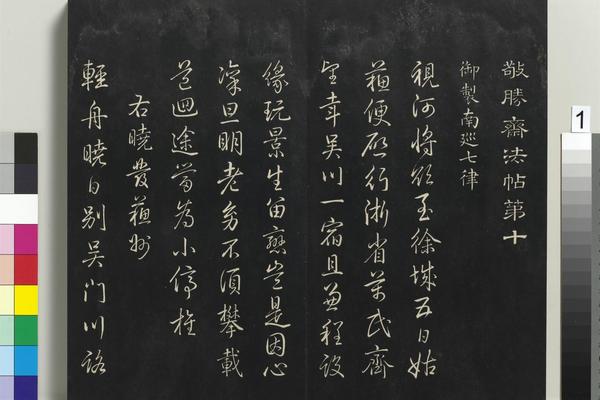 敬勝齋法帖第十
御製南巡七律
視河將欲至徐城五日姑
蘓便啟行浙省萬民齊
望幸吴川一宿且兼程設
緣玩景生留戀豈是因心
凜旦明老幼不須攀載
道迴途當為小停旌
右曉發蘓州
輕舟曉日别吴门川路
1